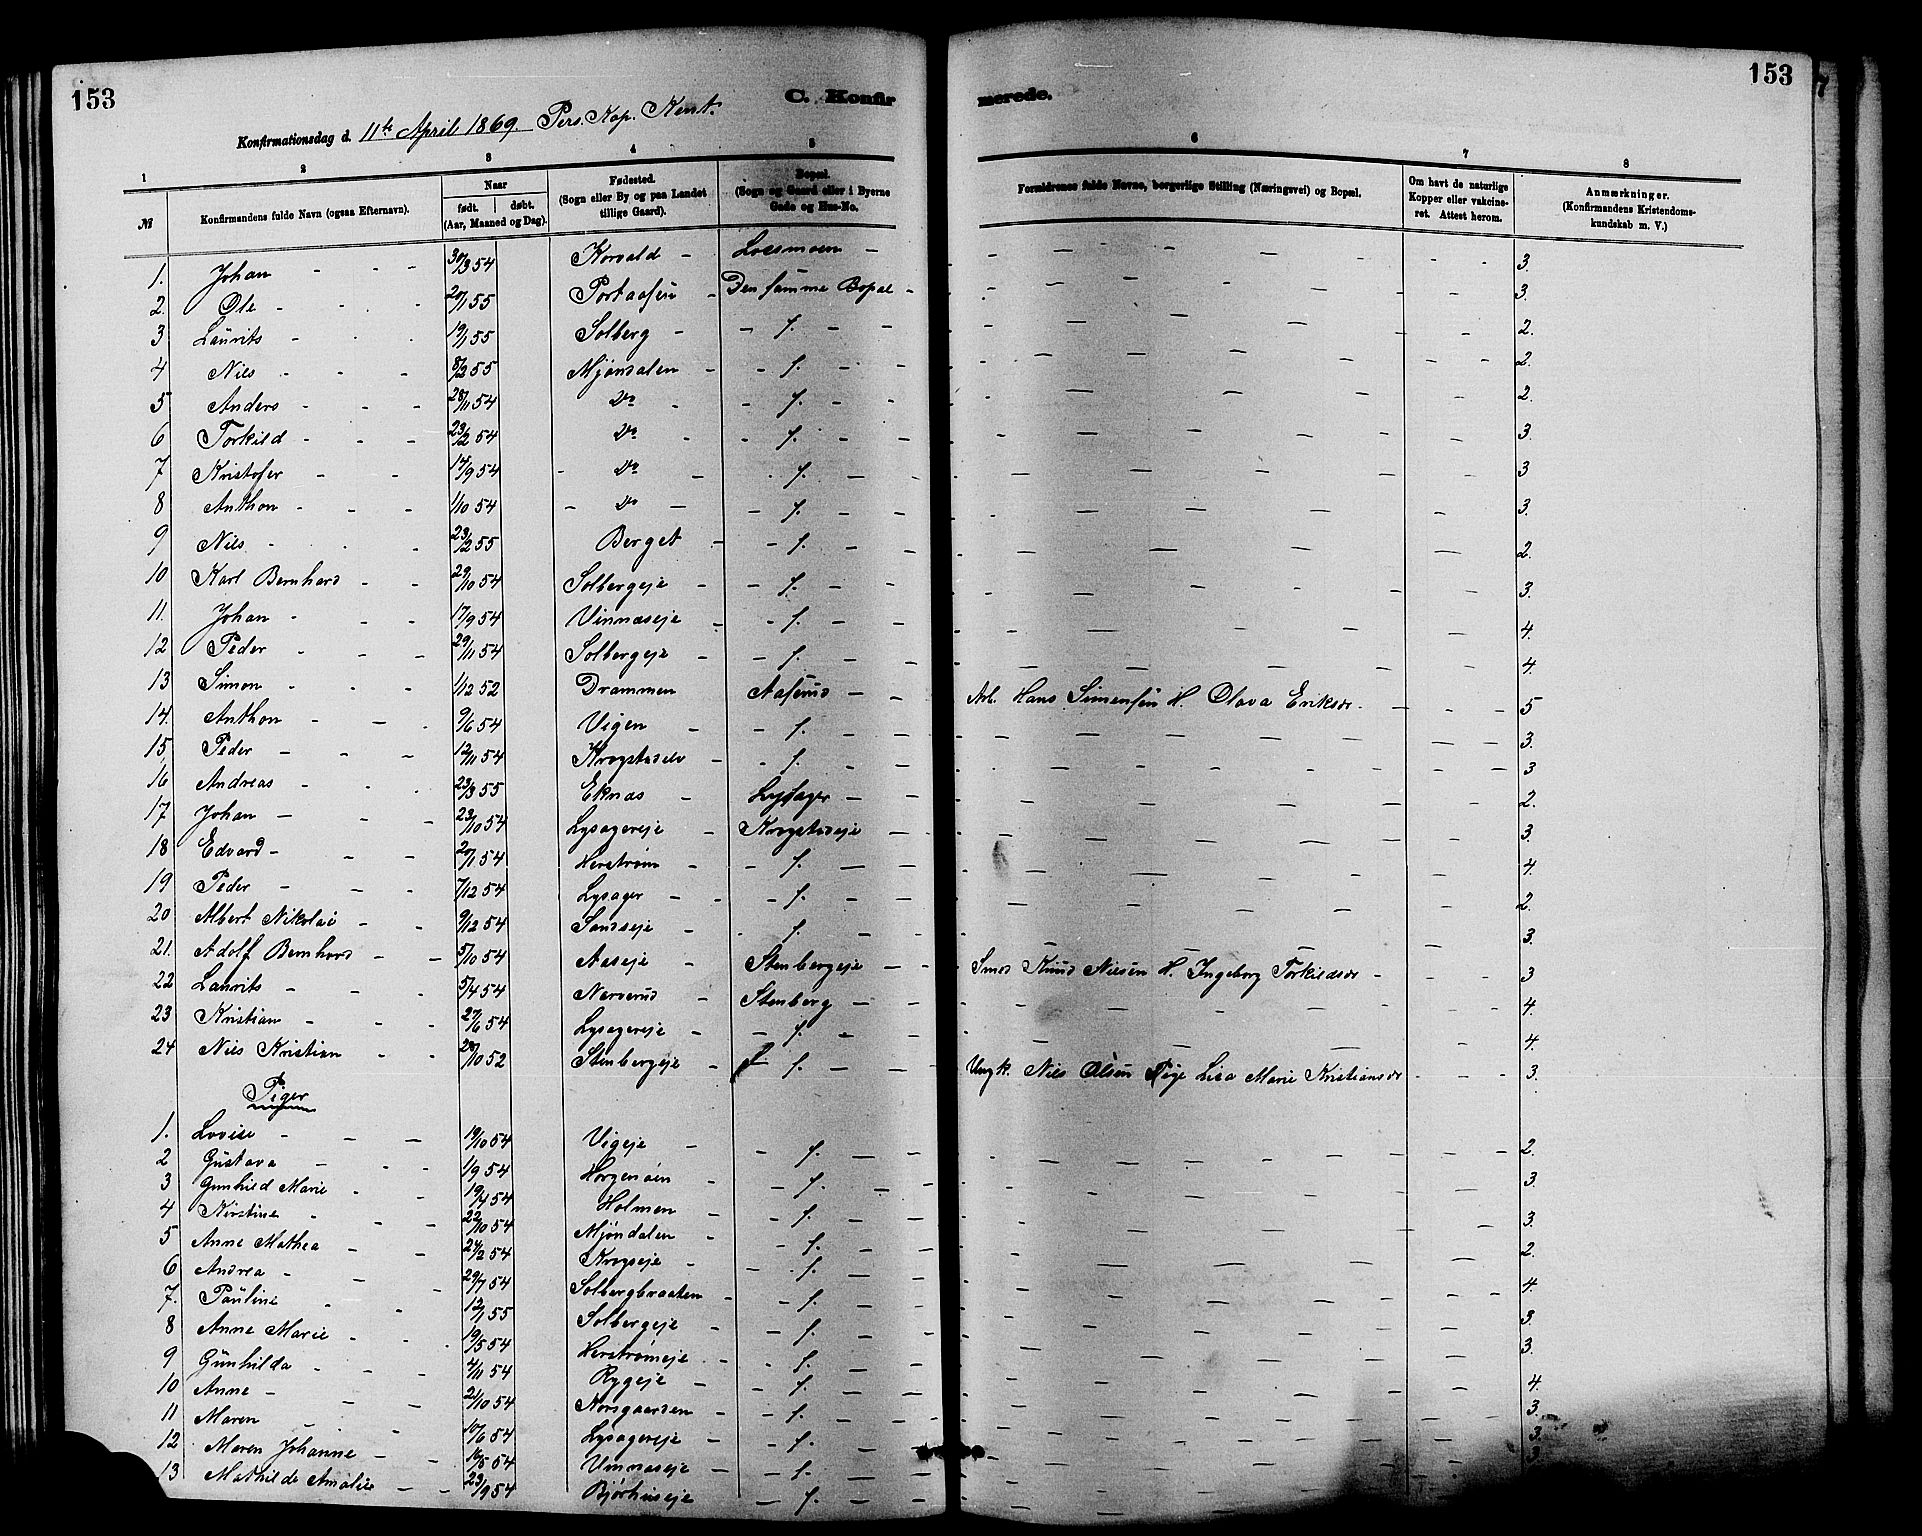 153
C. Konfirmerede.
153
Konfirmationsdag d. 11te April 1869 Pers. Kap. Kent.
1 2 3 4 5 6 7 8
№
Konfirmandens fulde Navn (ogsaa Efternavn).
Naar
født. døbt.
(Aar, Maaned og Dag).
Fødested.
(Sogn eller By og paa Landet tillige Gaard).
Bopæl.
(Sogn og Gaard eller i Byerne Gade og Hus-No.
Forældrenes fulde Navne, borgerlige Stilling (Næringsvei) og Bopæl.
Om havt de naturlige Kopper eller vakcineret. Attest herom.
Anmærkninger.
(Konfirmandens Kristendomskundskab m. V.)
1. Johan - - - 30/3 54 Korvald - Loesmoen - 3.
2. Ole - - - 20/1 55 Portaasen - Den samme Bopæl - 3.
3 Laurits - - - 19/1 55 Solberg - - f. - - 2.
4 Nils - - - 8/2 55 Mjøndalen - - f. - 2.
5 Anders - - - 28/11 54 Do - - f. - - 2.
6 Torkild - - - 23/2 54 Do - - f. - - 3.
7 Kristofer - - 14/9 54 - Do - - f. - - 3
8 Anthon - - - 1/10 54 - Do - - f. - - 3.
9 Nils - - - 23/2 55 Berget - - f. - - 2.
10 Karl Bernhard - - 29/10 54 Solbergeje - - f. - - 3.
11. Johan - - - 17/9 54 Vinnæseje - - f. - - 4.
12 Peder - - - 29/11 54 Solbergeje - - f. - - 4.
13 Simon - - - 1/12 52 Drammen Aaserud - - Arb. Hans Simensen H. Olava Eriksdr - - - 5
14. Anthon - - 9/6 54 Vigen - - f. - - 3.
15. Peder - - - 12/11 54 Krogstadelv - - f. - - 3
16 Andreas - - - 23/3 55 Eknæs - Lysager - - 2.
17 Johan - - - 23/10 54 Lysagereje - Krogstadeje - 3.
18 Edvard - - - 20/1 54 Herstrøm - - f. - - 4.
19 Peder - - - 7/12 54 Lysager - - f. - - 2.
20 Albert Nikolai - - 9/12 54 Sandseje - - f. - - 3.
21. Adolf Bernhard - - 5/10 54 Aaseje - Stenbergeje - - Smed Knud Nilsen H. Ingeborg Torkildsdr - - - 3
22 Laurits - - - 5/4 54 Narverud - Stenberg - - 4.
23 Kristian - - - 27/6 54 Lysagereje - - f. - - 4.
24 Nils Kristian - - 28/10 52 Stenbergeje - f. - - Ungk. Nils Olsen Pige Lisa Marie Kristiansdr - - - 3.
Piger
1. Lovise - - - 19/10 54 Vigeje - - f. - - 2.
2 Gustava - - - 1/9 54 Horgenøen - f. - - 3.
3 Gunhild Marie - - 19/4 54 Holmen - - f. - - 3.
4 Kirstine - - - 22/10 54 Mjøndalen - - f. - - 2.
5 Anne Mathea - - 24/2 54 Krogseje - - f. - - 4.
6 Andrea - - 29/7 54 Solbergbraaten - - f. - - 3.
7. Pauline - - 12/1 55 Solbergeje - f. - - 3.
8 Anne Marie - - 19/5 54 Herstrømeje - - f. - -
9 Gunhilda - - 4/11 54 Rygeje - - f. - - 4.
10 Anne - - - 21/10 54 Norsgaarden - - f. - - 3.
11 Maren - - 10/6 54 Lysagereje - - f. - - 3.
12 Maren Johanne - - 16/5 54 Vinnæseje - - f. - - 3.
13 Mathilde Amalie - - 23/9 54 Bjørhuseje - f. - -